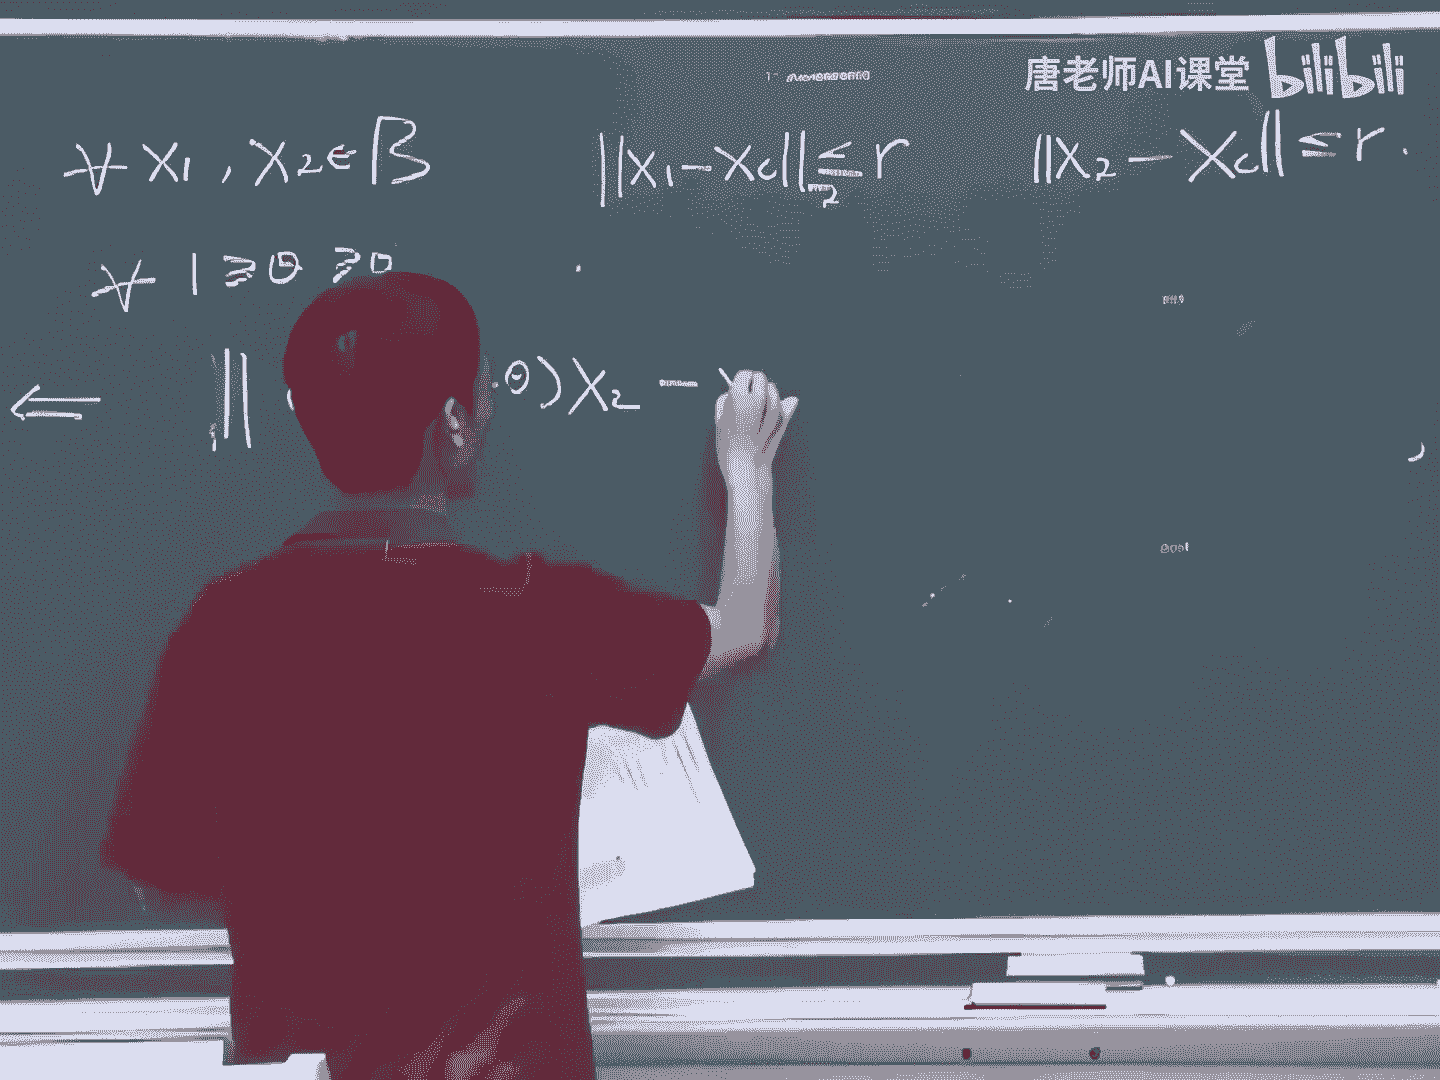 唐老师AI课堂 bilibili
∀ x₁, x₂ ∈ B ‖x₁ - x_c‖₂ ≤ r ‖x₂ - x_c‖ ≤ r.
∀ 1 ≥ θ ≥ 0
⇐ ‖ θ) x₂ -